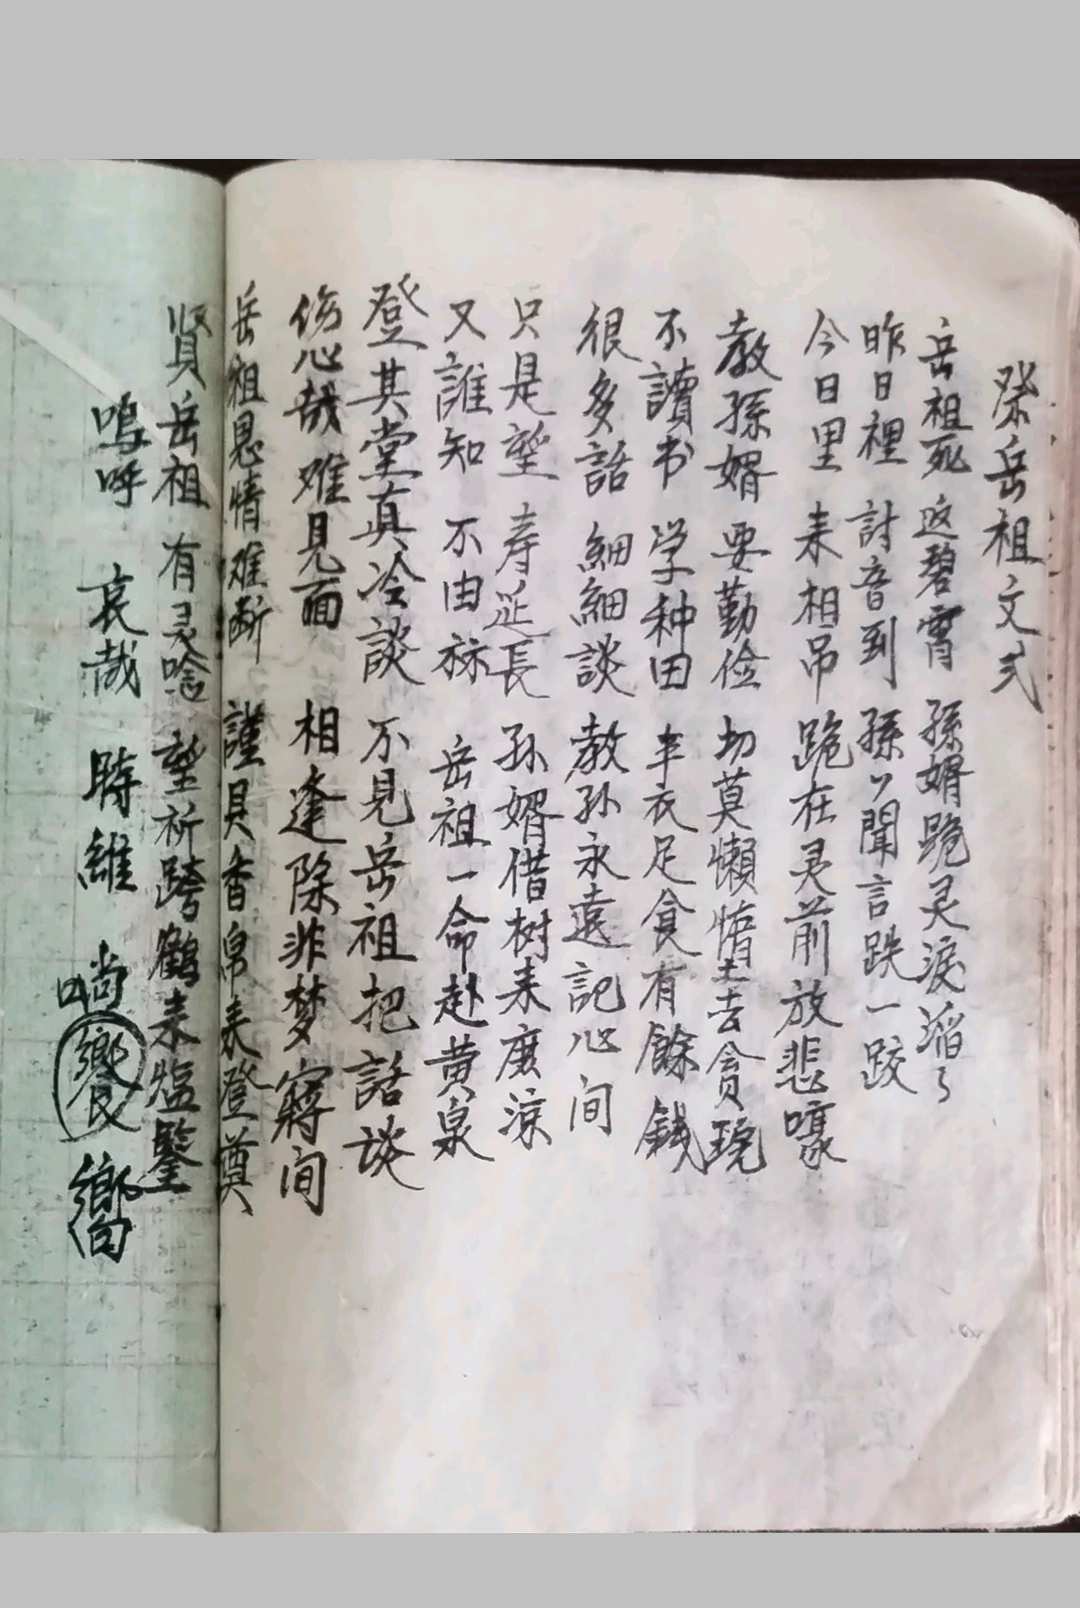 祭岳祖文式
岳祖死 返碧霄 孫婿跪灵淚滔々
昨日裡 討音到 孫㆑聞言跌一跤
今日里 来相吊 跪在灵前放悲嚎
教孫婿 要勤俭 切莫懒惰去贪玩
不讀书 学种田 丰衣足食有餘錢
很多話 細細談 教孙永遠記心间
只是望 寿延長 孙婿借树来庶凉
又誰知 不由 岳祖一命赴黄泉
登其堂真冷談 不見岳祖把話谈
伤心哉 难見面 相逢除非梦寐间
岳祖恩情难断 謹具香帛来登奠
贤岳祖 有灵唸 望祈跨鶴来鑒
嗚呼 哀哉 時維 尚饗 嚮